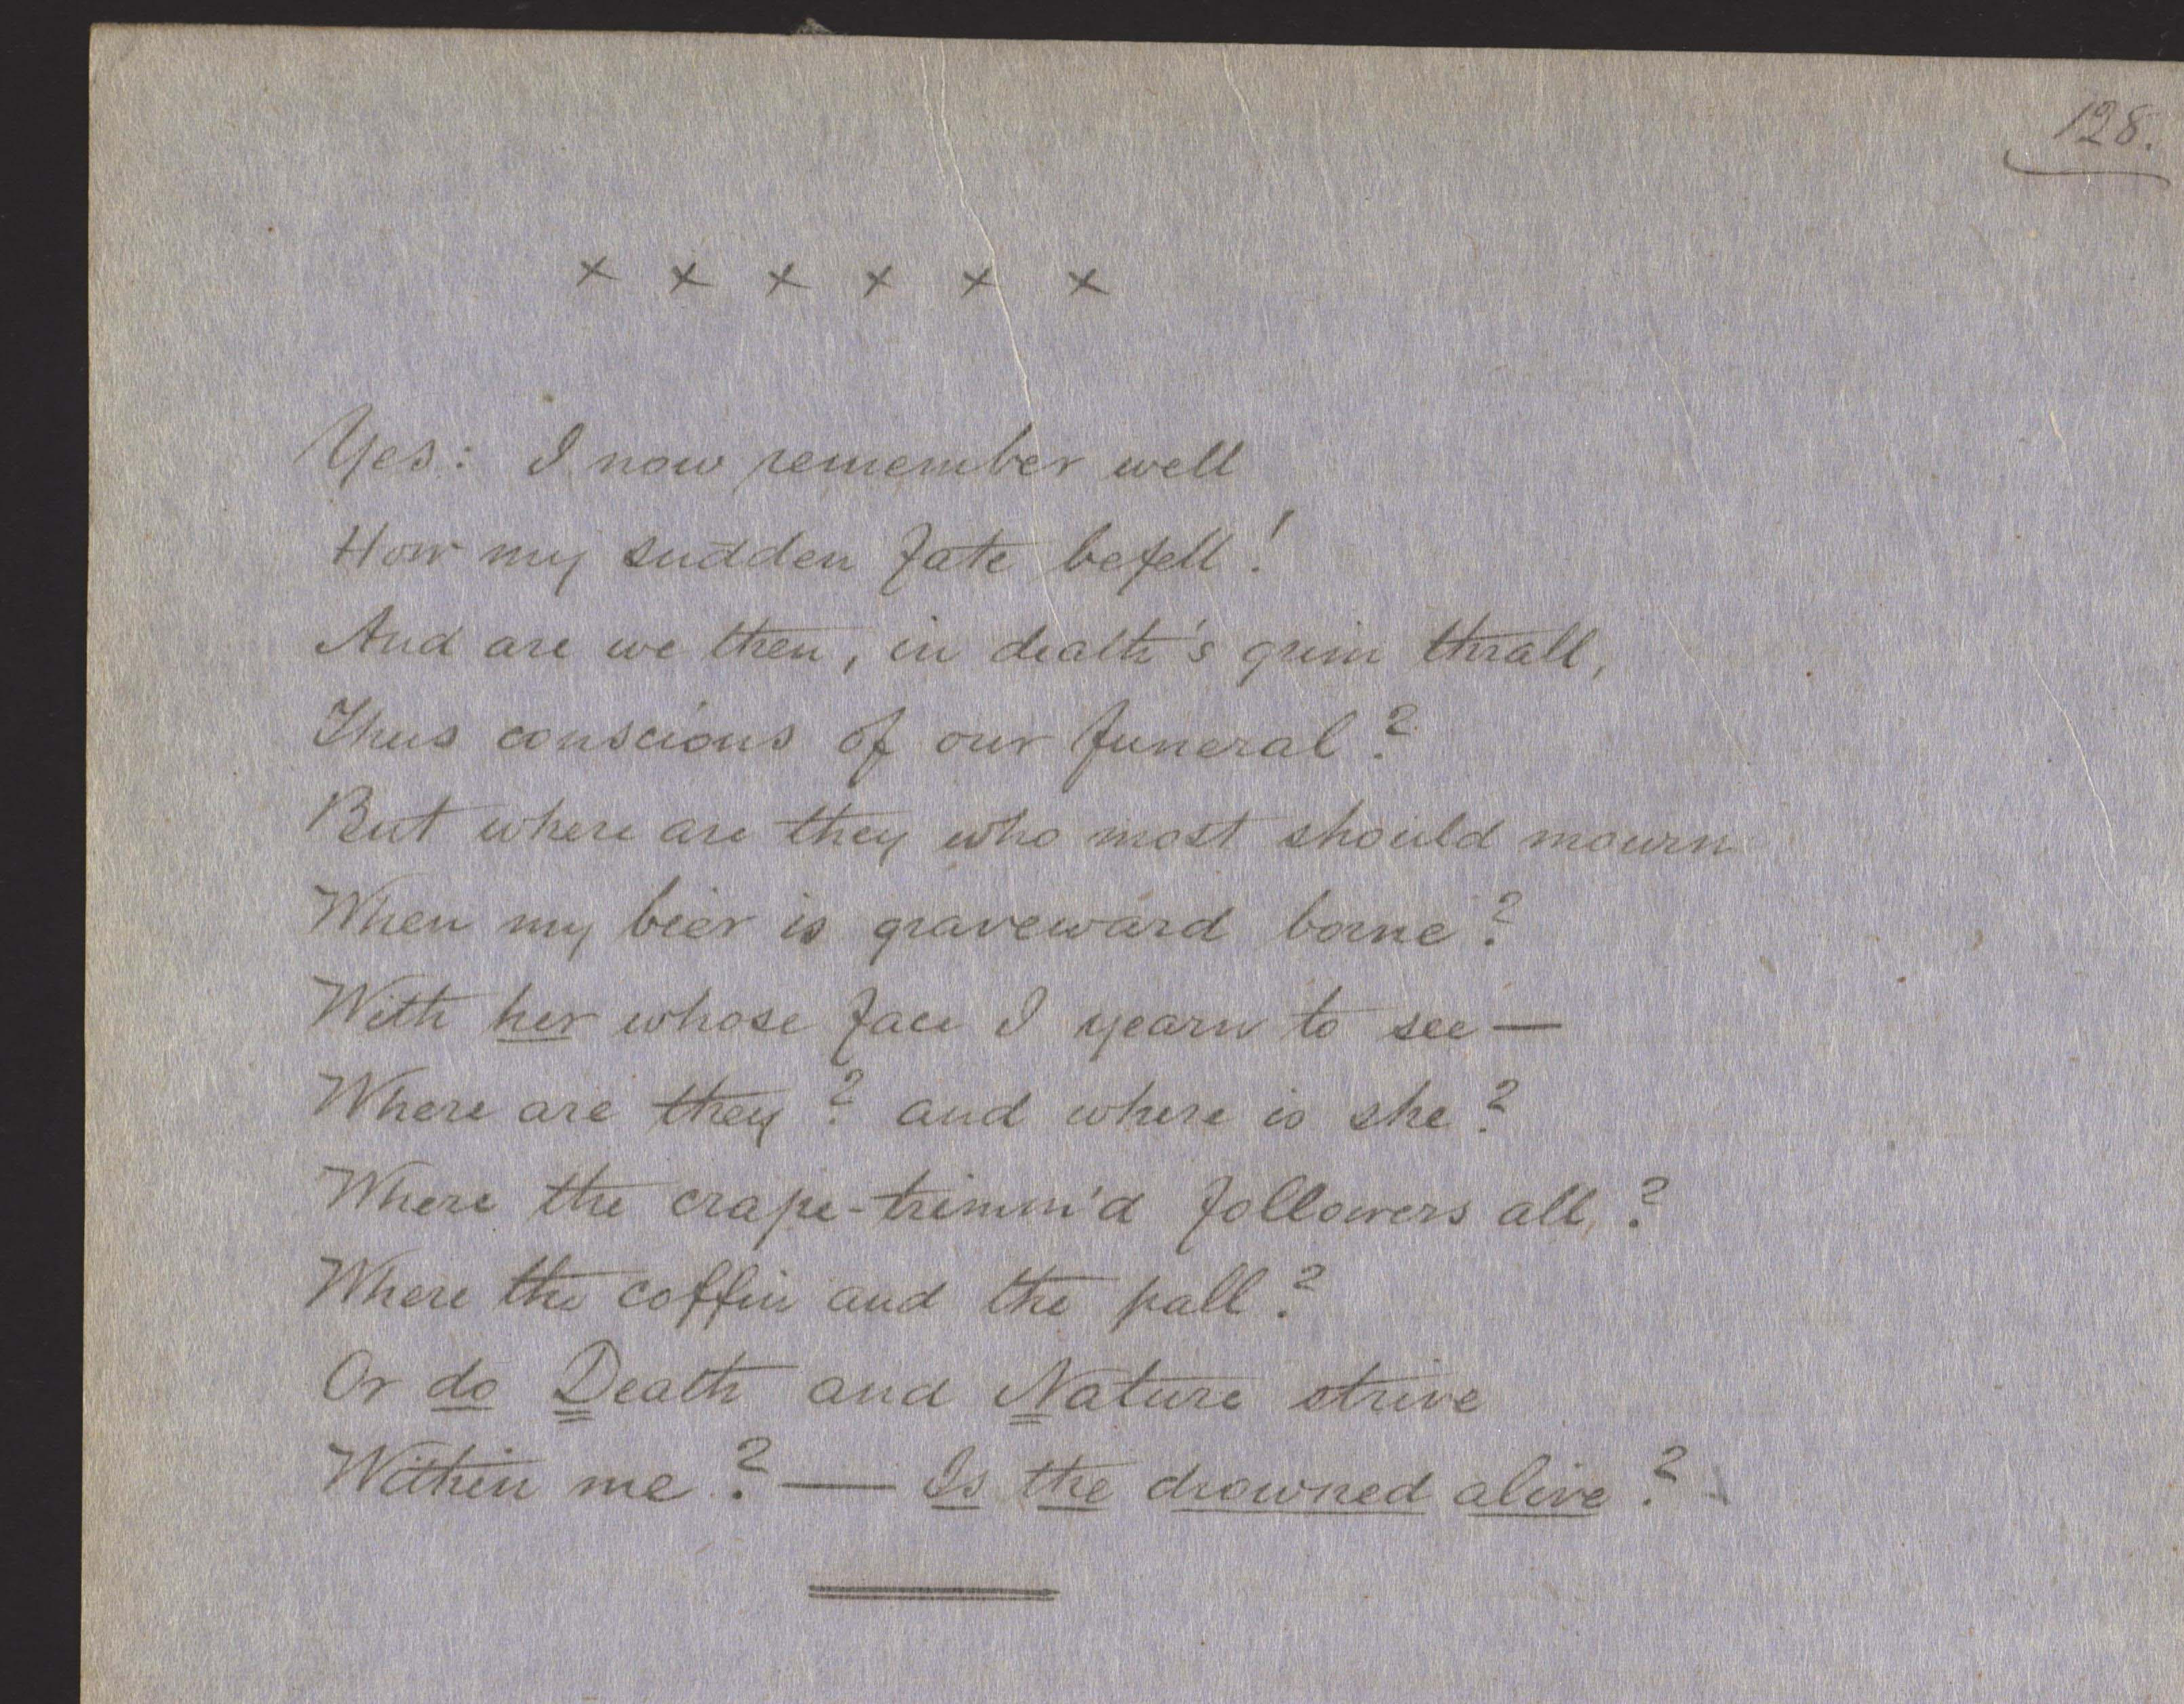 128.
x x x x x x
Yes: I now remember well
How my sudden fate befell!
And are we then, in death's grim thrall,
Thus conscious of our funeral?
But where are they who most should mourn
When my bier is graveward borne?
With her whose face I yearn to see—
Where are they? and where is she?
Where the crape-trimm'd followers all,?
Where the coffin and the pall?
Or do Death and Nature strive
Within me?— Is the drowned alive?